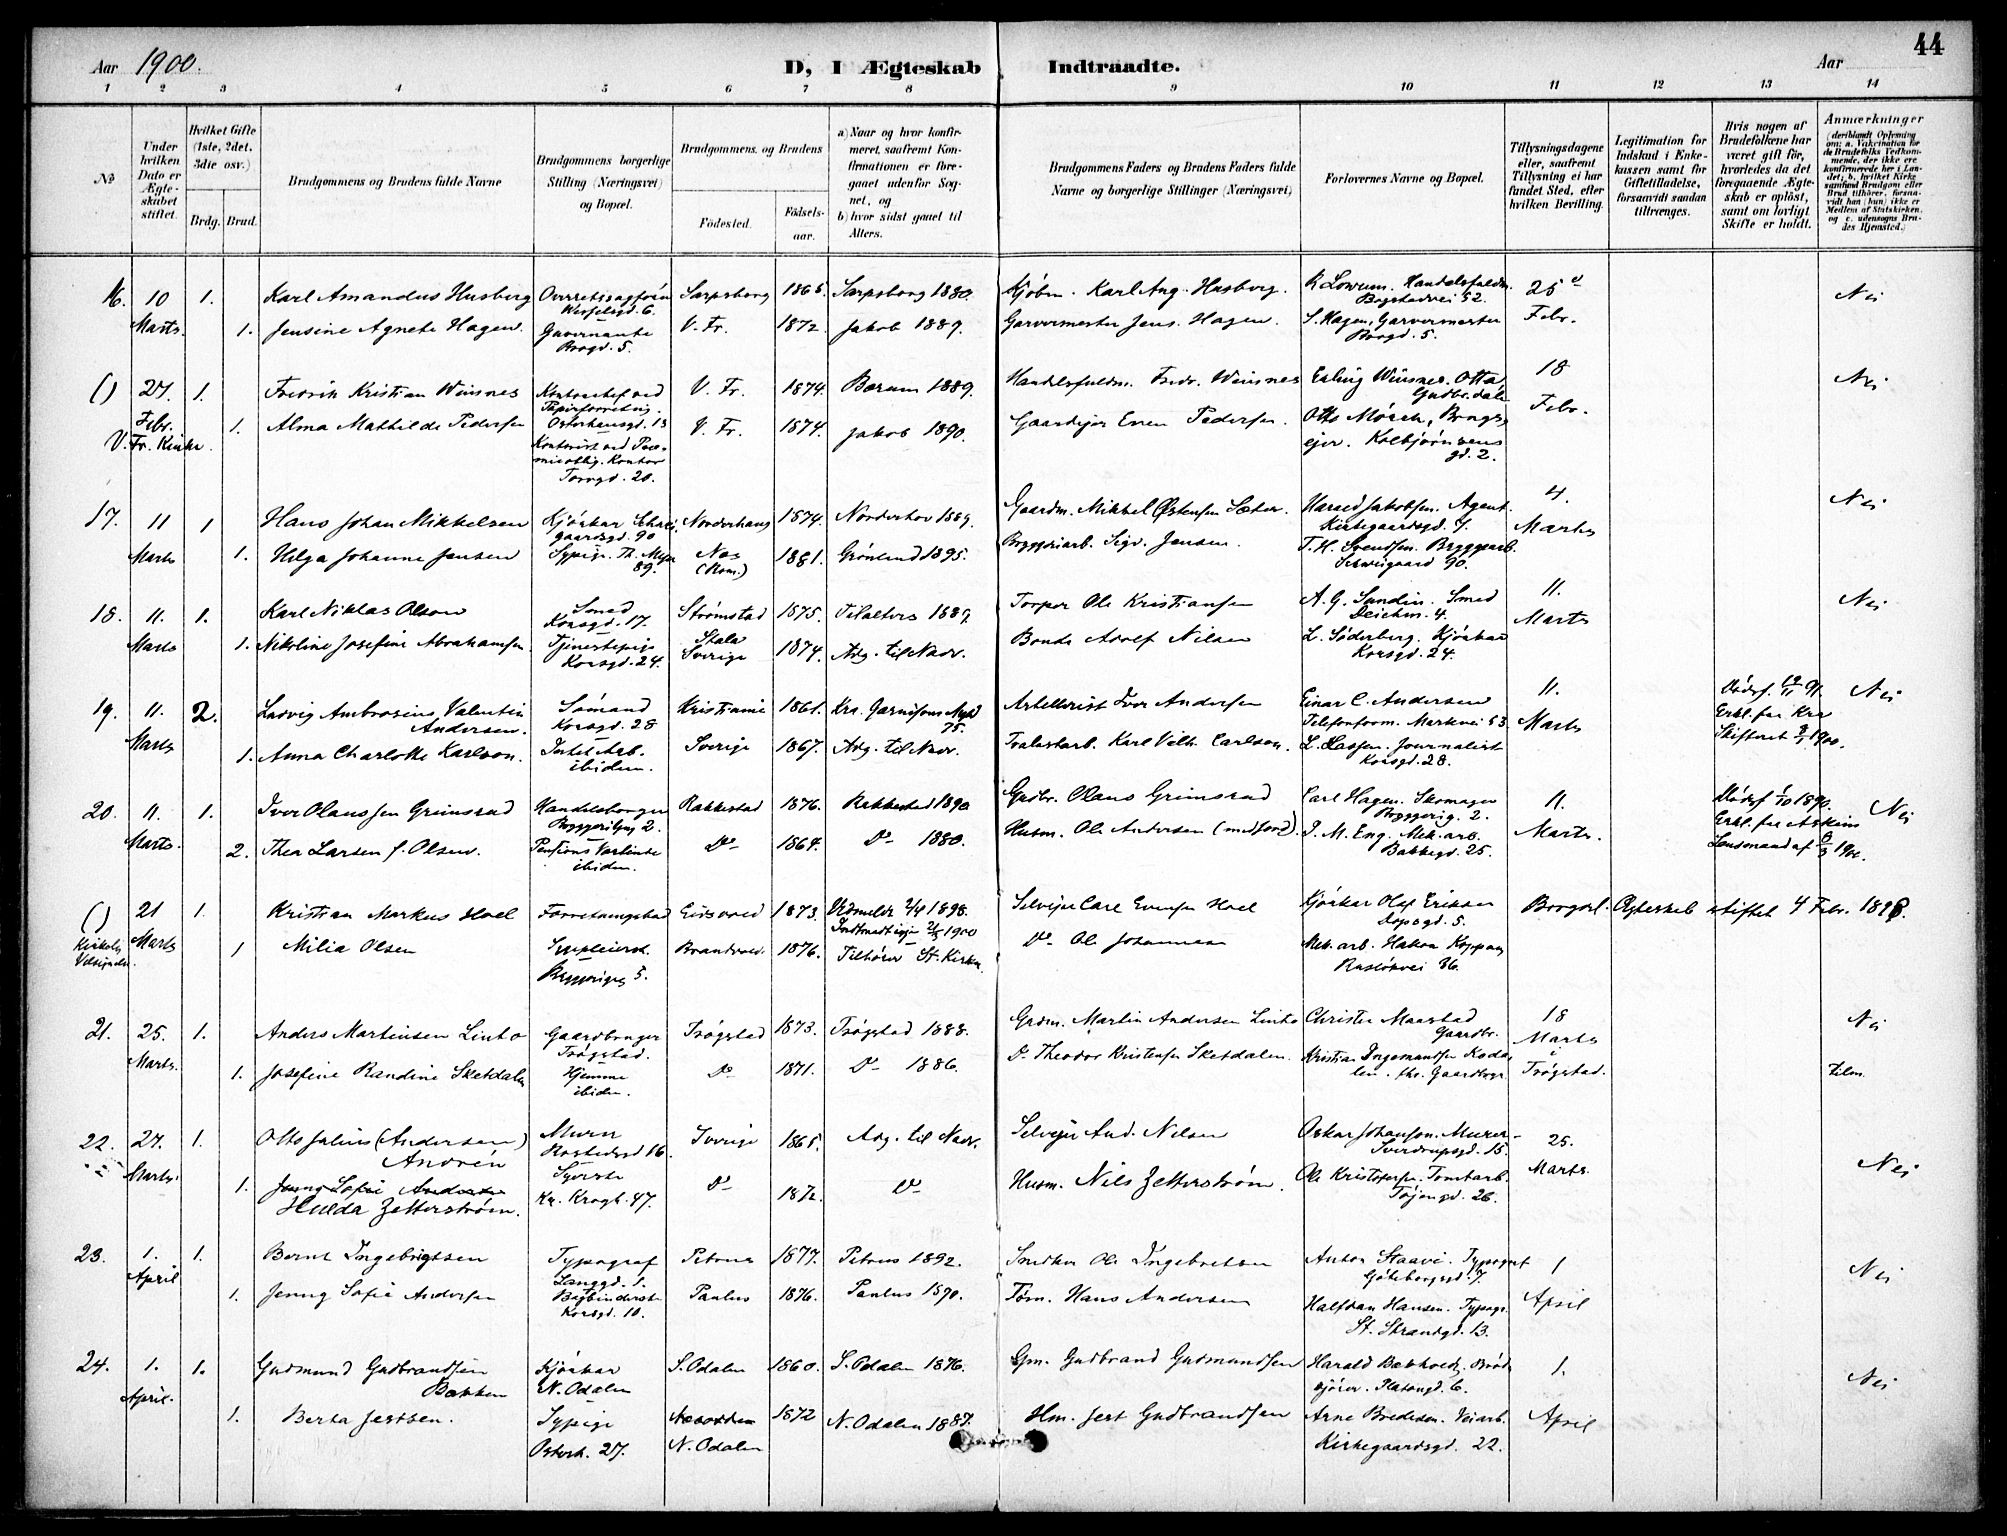 44
Aar 1900.
D, I Ægteskab Indtraadte.
Aar
1 2 3 4 5 6 7 8 9 10 11 12 13 14
No
Under hvilken Dato er Ægteskabet stiftet.
Hvilket Gifte (1ste, 2det, 3die osv.)
Brdg. Brud.
Brudgommens og Brudens fulde Navne
Brudgommens borgerlige Stilling (Næringsvei) og Bopæl.
Brudgommens og Brudens
Fødested.
Fødselsaar.
a) Naar og hvor konfirmeret, saafremt Konfirmationen er foregaaet udenfor Sognet, og
b) hvor sidst gaaet til Alters.
Brudgommens Faders og Brudens Faders fulde Navne og borgerlige Stillinger (Næringsvei)
Forlovernes Navne og Bopæl.
Tillysningsdagene eller, saafremt Tillysning ei har fundet Sted, efter hvilken Bevilling.
Legitimation for Indskud i Enkekassen samt for Giftetilladelse, forsaavidt saadan tiltrænges.
Hvis nogen af Brudefolkene har været gift før, hvorledes da det foregaaende Ægteskab er opløst, samt om lovligt Skifte er holdt.
Anmærkninger
(deriblandt Oplysning om: a. Vakcination for de Brudefolks Vedkommende, der ikke ere konfirmerede her i Landet; b. hvilket Kirkesamfund Brudgom eller Brud tilhører, forsaavidt han (hun) ikke er Medlem af Statskirken, og c. udensogns Brudes Hjemsted.)
16. 10 1. Karl Amandus Husberg Sarpsborg 1865. Sarpsborg 1880. Kjøbm. Karl Aug. Husberg. 25 Nei
Bogstadvei 52.
Marts. 1. Jensine Agnete Hagen Guvernante V. Fr. 1872. Jakob 1889. Garvermester Jens Hagen. S. Hagen, Garvermester Febr.
Brogd. 5. Brogd. 5.
() 27. 1. Fredrik Kristian Wiisnes V. Fr. 1874. Bærum 1889. Handelsfuldm. Fredr. Wiisnes Erling Wiisnes. Otta, 18 Nei
Gudbr.dalen
Febr. 1. Alma Mathilde Pedersen Osterhausgd. 13 V. Fr. 1874. Jakob 1890. Gaardejer Even Pedersen. Otto Mørch, Febr.
V. Fr. Kirke.
Torvgd. 20. gd. 2.
17. 11 1 Hans Johan Mikkelsen Kjørkar Norderhaug 1874. Norderhov 1889. Gaardm. Mikkel Østensen Sæter. Harald Jakobsen. Agent. 4. Nei
gaardsgd. 90 Kirkegaardsgd. 7. Marts
Marts 1. Helga Johanne Jensen Sypige. Th. Meyer 89. Nes (Rom.) 1881. Grønland 1895. Bryggeriarb. Sigv. Jensen. T. H. Svendsen. Bryggearb.
Schweigaard 90.
18. 11. 1. Karl Niklas Olsson Smed Strømstad 1875. Tilalters 1889. Torper Ole Kristiansen A. G. Sundin. Smed 11. Nei
Korsgd. 17. Deichm. 4. Marts
Marts 1. Nikoline Josefine Abrahamsen Tjenestepige Sverige 1874. Adg. til Nadv. Bonde Adolf Nilsen L. Söderberg. Kjørkar
Korsgd. 24. Korsgd. 24.
19. 11. 2. Ludvig Ambrosius Valentin Sømand Kristiania 1861. Kra. Garnisons Mgh. Artillerist Iver Andersen Einar C. Andersen 11. Dødsf. 19/11 91. Nei
Andersen. Korsgd. 28 75. Telefonform. Markvei 53. Marts Erkl. fra Kra
Marts 1. Anna Charlotte Karlson. Intet Arb. Sverige 1867. Adg. til Nadv. Karl Vilh. Carlson. L. Lassen. Journalist Skifteret 1900.
ibidem. Korsgd. 28.
20. 11. 1. Iver Olaussen Grimsrud Rakkestad 1876. Rakkestad 1890 Gedbr. Olaus Grimsrud Carl Hagen. Skomager 11. Dødsf 1/10 1890. Nei
Bryggerig. 2. Erkl. fra Askims
Marts. 2. Thea Larsen f. Olsen. Pensions Værtinde Do 1864. Do 1880. Husm. Ole Andersen J. M. Eng. Mek. arb. Marts. Lensmand af 8/3 1900.
ibidem. Bakkegd. 25.
() 21 1. Kristian Markus Hoel Eidsvold 1873. Udmeldt 2/4 1898. Selvejer Carl Evensen Hoel Kjørkar Olaf Eriksen Borgerl. Ægteskab stiftet 4 Febr. 1898.
Indtmeldt igjen 1900 gd. 5.
Kirkelig Velsignelse. Marts 1 Milia Olsen Brandvold. 1876. Tilhører St. Kirken. Do Ole Johannesen Mek. arb. Hakon Koppang
Bryggerigd 5. 36.
21. 25. 1. Anders Martinsen Linto Gaardbruger Trøgstad 1873. Trøgstad 1888. Grdm. Martin Andersen Linto Christen Maastad 18 Nei
Trøgstad. Gaardbr. Marts
Marts. 1. Josefine Randine Sketdalen Hjemme Do 1871. Do 1886. Do Theodor Kristensen Sketdalen. Kristian Ingemundsen i
ibidem. Gaardbgr. Trøgstad.
22. 27. 1. Otto Julius (Andersen) Murer Sverige 1865. Adg. til Nadv. Selvejer And. Nilsen Oskar Johanson. Murer. 25.
Andrén Rostedsgd 16. Sverdrupsgd. 15. Marts.
Marts. 1. Jenny Sofie Andersen Syerske Do 1872. Do Husm. Nils Zetterstrøm. Ole Kristofersen. Tomtarb. Nei
Hulda Zetterstrøm. Kr. Krogh. 47. Tøjengd. 26.
23. 1. 1. Bernt Ingebrigtsen Typograf Petrus 1877. Petrus 1892. Snedker Ole Ingebretsen Anton Staavi. Typograf 1 Nei
Langgd. 1. Göteborggd. 7.
April 1. Jenny Sofie Andersen Bogbinderske Paulus 1876. Paulus 1890. Tøm. Hans Andersen Halfdan Hansen. Typogr. April
Korsgd. 10. St. Strandgd. 13.
24. 1. 1. Gudmund Gudbrandsen Kjørkar S. Odalen 1860. S. Odalen 1876. Gm. Gudbrand Gudmundsen Harald Bækkvold, Brød 1. Nei
Bækken N. Odalen kjører. Platougd. 6.
April. 1. Berta Jertsen. Sypige 1872 N. Odalen 1887. Hm. Jert Gudbrandsen Arne Bredesen. Veiarb. April
Osterh. 27. N. Odalen Kirkegaardsgd. 22.